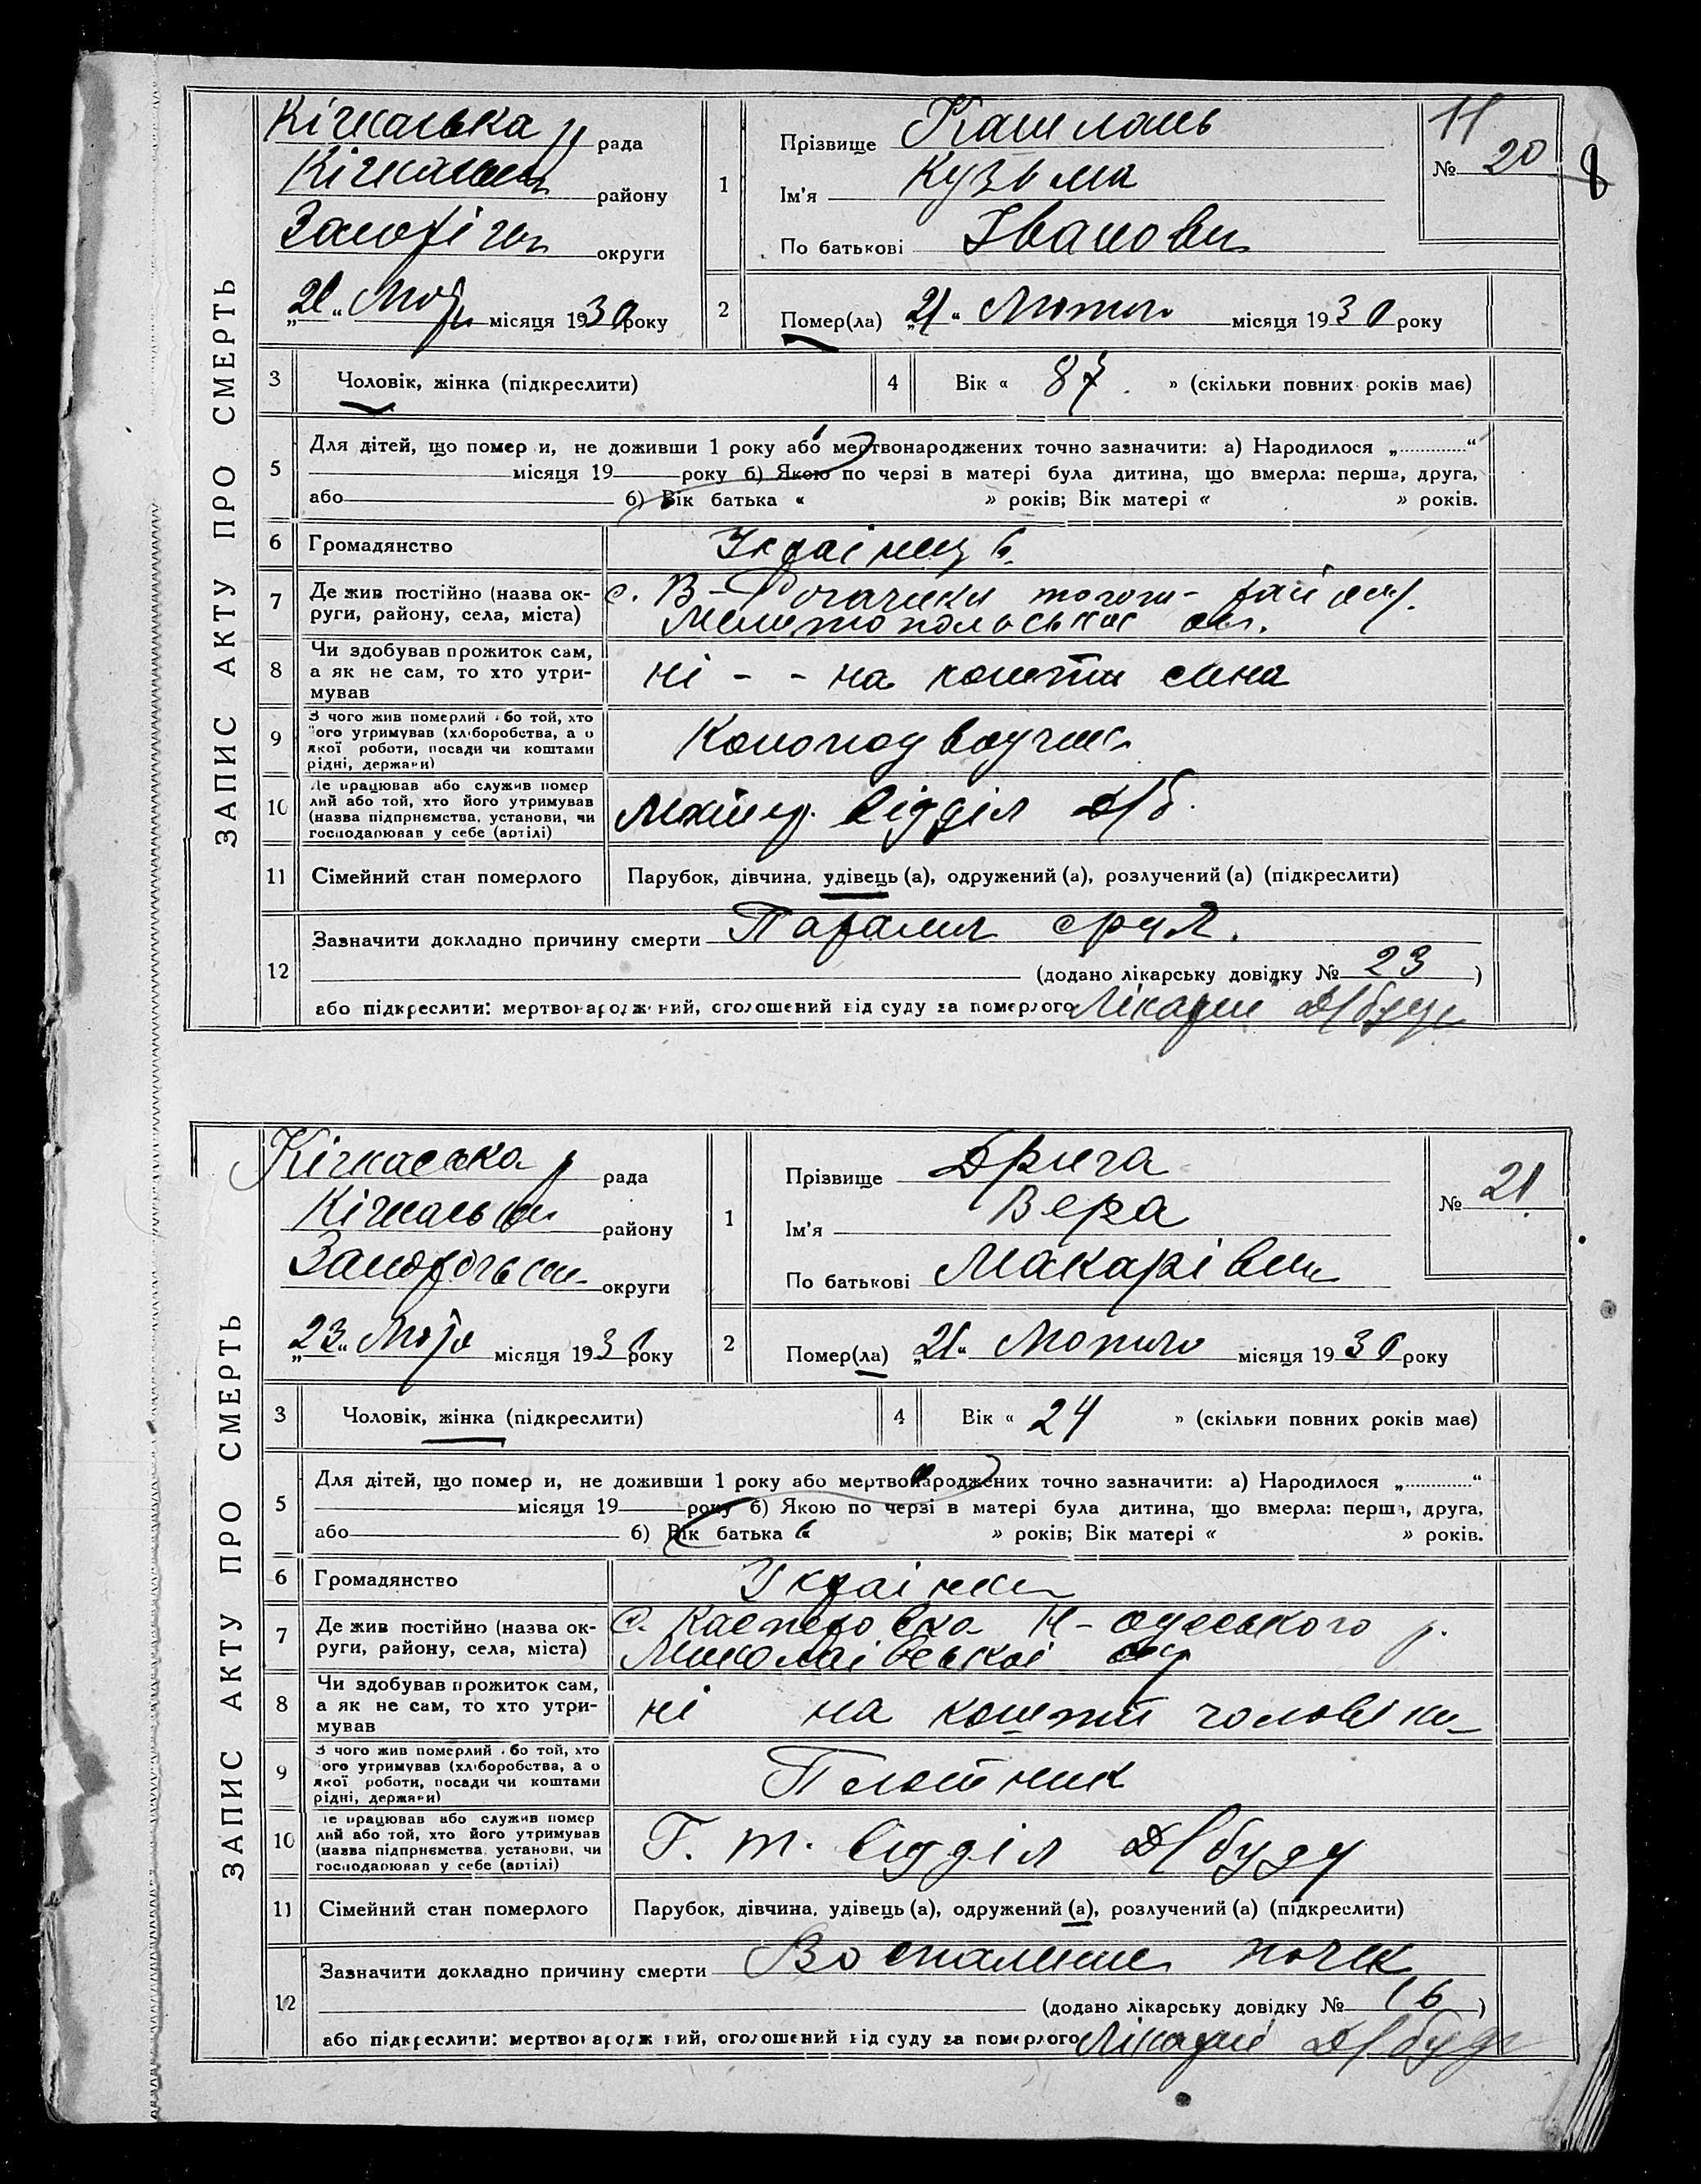 ЗАПИС АКТУ ПРО СМЕРТЬ
Кічкаська р рада
району
округи
місяця 1930 року
1
Прізвище
Ім'я Кузьма
По батькові Іванович
11
№ 20
8
2
Помер(ла) „21“ Лютого місяця 1930 року
3
Чоловік, жінка (підкреслити)
4
Вік « 87 » (скільки повних років має)
5
Для дітей, що помер и, не доживши 1 року або мертвонароджених точно зазначити: а) Народилося „ “
місяця 19 року б) Якою по черзі в матері була дитина, що вмерла: перша, друга,
або б) Вік батька « » років; Вік матері « » років.
6
Громадянство
7
Де жив постійно (назва ок-
руги, району, села, міста)
с. В-Рогачики того-
Мелитопольської
8
Чи здобував прожиток сам,
а як не сам, то хто утри-
мував
ні - - на кошти сина
9
З чого жив померлий або той, хто
його утримував (хліборобства, а о
якої роботи, посади чи коштами
рідні, держави)
10
Де працював або служив помер
лий або той, хто його утримував
(назва підприємства, установи, чи
господарював у себе (артілі)
відділ Д/б.
11
Сімейний стан померлого
Парубок, дівчина, удівець (а), одружений (а), розлучений (а) (підкреслити)
12
Зазначити докладно причину смерти
(додано лікарську довідку № 23 )
або підкреслити: мертвонароджений, оголошений від суду за померлого Лікарні Д/буду
ЗАПИС АКТУ ПРО СМЕРТЬ
Кічкаська р рада
району
округи
„23“ місяця 1930 року
1
Прізвище Дрига
Ім'я Вера
По батькові Макарівна
№ 21
2
Помер(ла) „21“ Лютого місяця 1930 року
3
Чоловік, жінка (підкреслити)
4
Вік « 24 » (скільки повних років має)
5
Для дітей, що помер и, не доживши 1 року або мертвонароджених точно зазначити: а) Народилося „ “
місяця 19 року б) Якою по черзі в матері була дитина, що вмерла: перша, друга,
або б) Вік батька « » років; Вік матері « » років.
6
Громадянство
Українка
7
Де жив постійно (назва ок-
руги, району, села, міста)
с. Касперовка Н-одеського р.
Миколаівської окр
8
Чи здобував прожиток сам,
а як не сам, то хто утри-
мував
ні на кошти чоловіка
9
З чого жив померлий або той, хто
його утримував (хліборобства, а о
якої роботи, посади чи коштами
рідні, держави)
Плотник
10
Де працював або служив помер
лий або той, хто його утримував
(назва підприємства, установи, чи
господарював у себе (артілі)
Г. т. відділ Д/буду
11
Сімейний стан померлого
Парубок, дівчина, удівець (а), одружений (а), розлучений (а) (підкреслити)
12
Зазначити докладно причину смерти Воспаление почек
(додано лікарську довідку № 16 )
або підкреслити: мертвонароджений, оголошений від суду за померлого Лікарні Д/буду